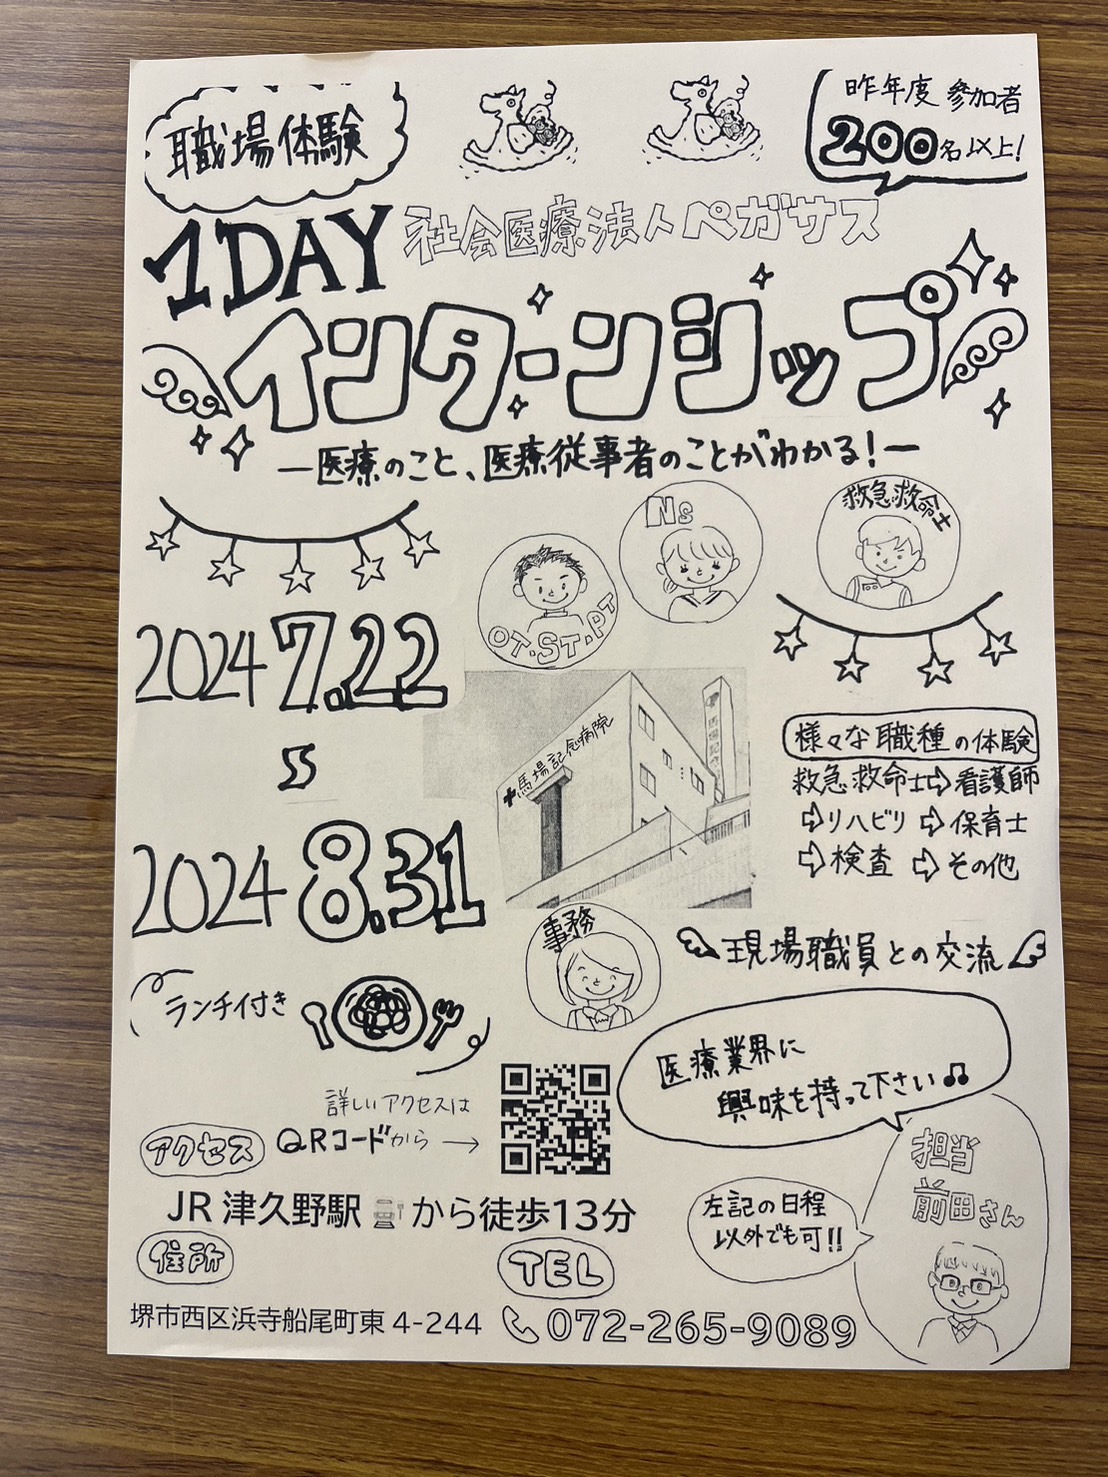 職場体験
昨年度 参加者
200名以上!
1DAY 社会医療法人ペガサス
インターンシップ
ー医療のこと、医療従事者のことがわかる!ー
Ns
救急救命士
OT.ST.PT
2024 7.22
2024 8.31
馬場記念病院
様々な職種の体験
救急救命士⇨看護師
⇨リハビリ ⇨保育士
⇨検査 ⇨その他
事務
現場職員との交流
ランチ付き
医療業界に
興味を持って下さい♫
詳しいアクセスは
アクセス QRコードから →
担当
前田さん
JR 津久野駅から徒歩13分
左記の日程
以外でも可!!
住所
堺市西区浜寺船尾町東 4-244
TEL
072-265-9089